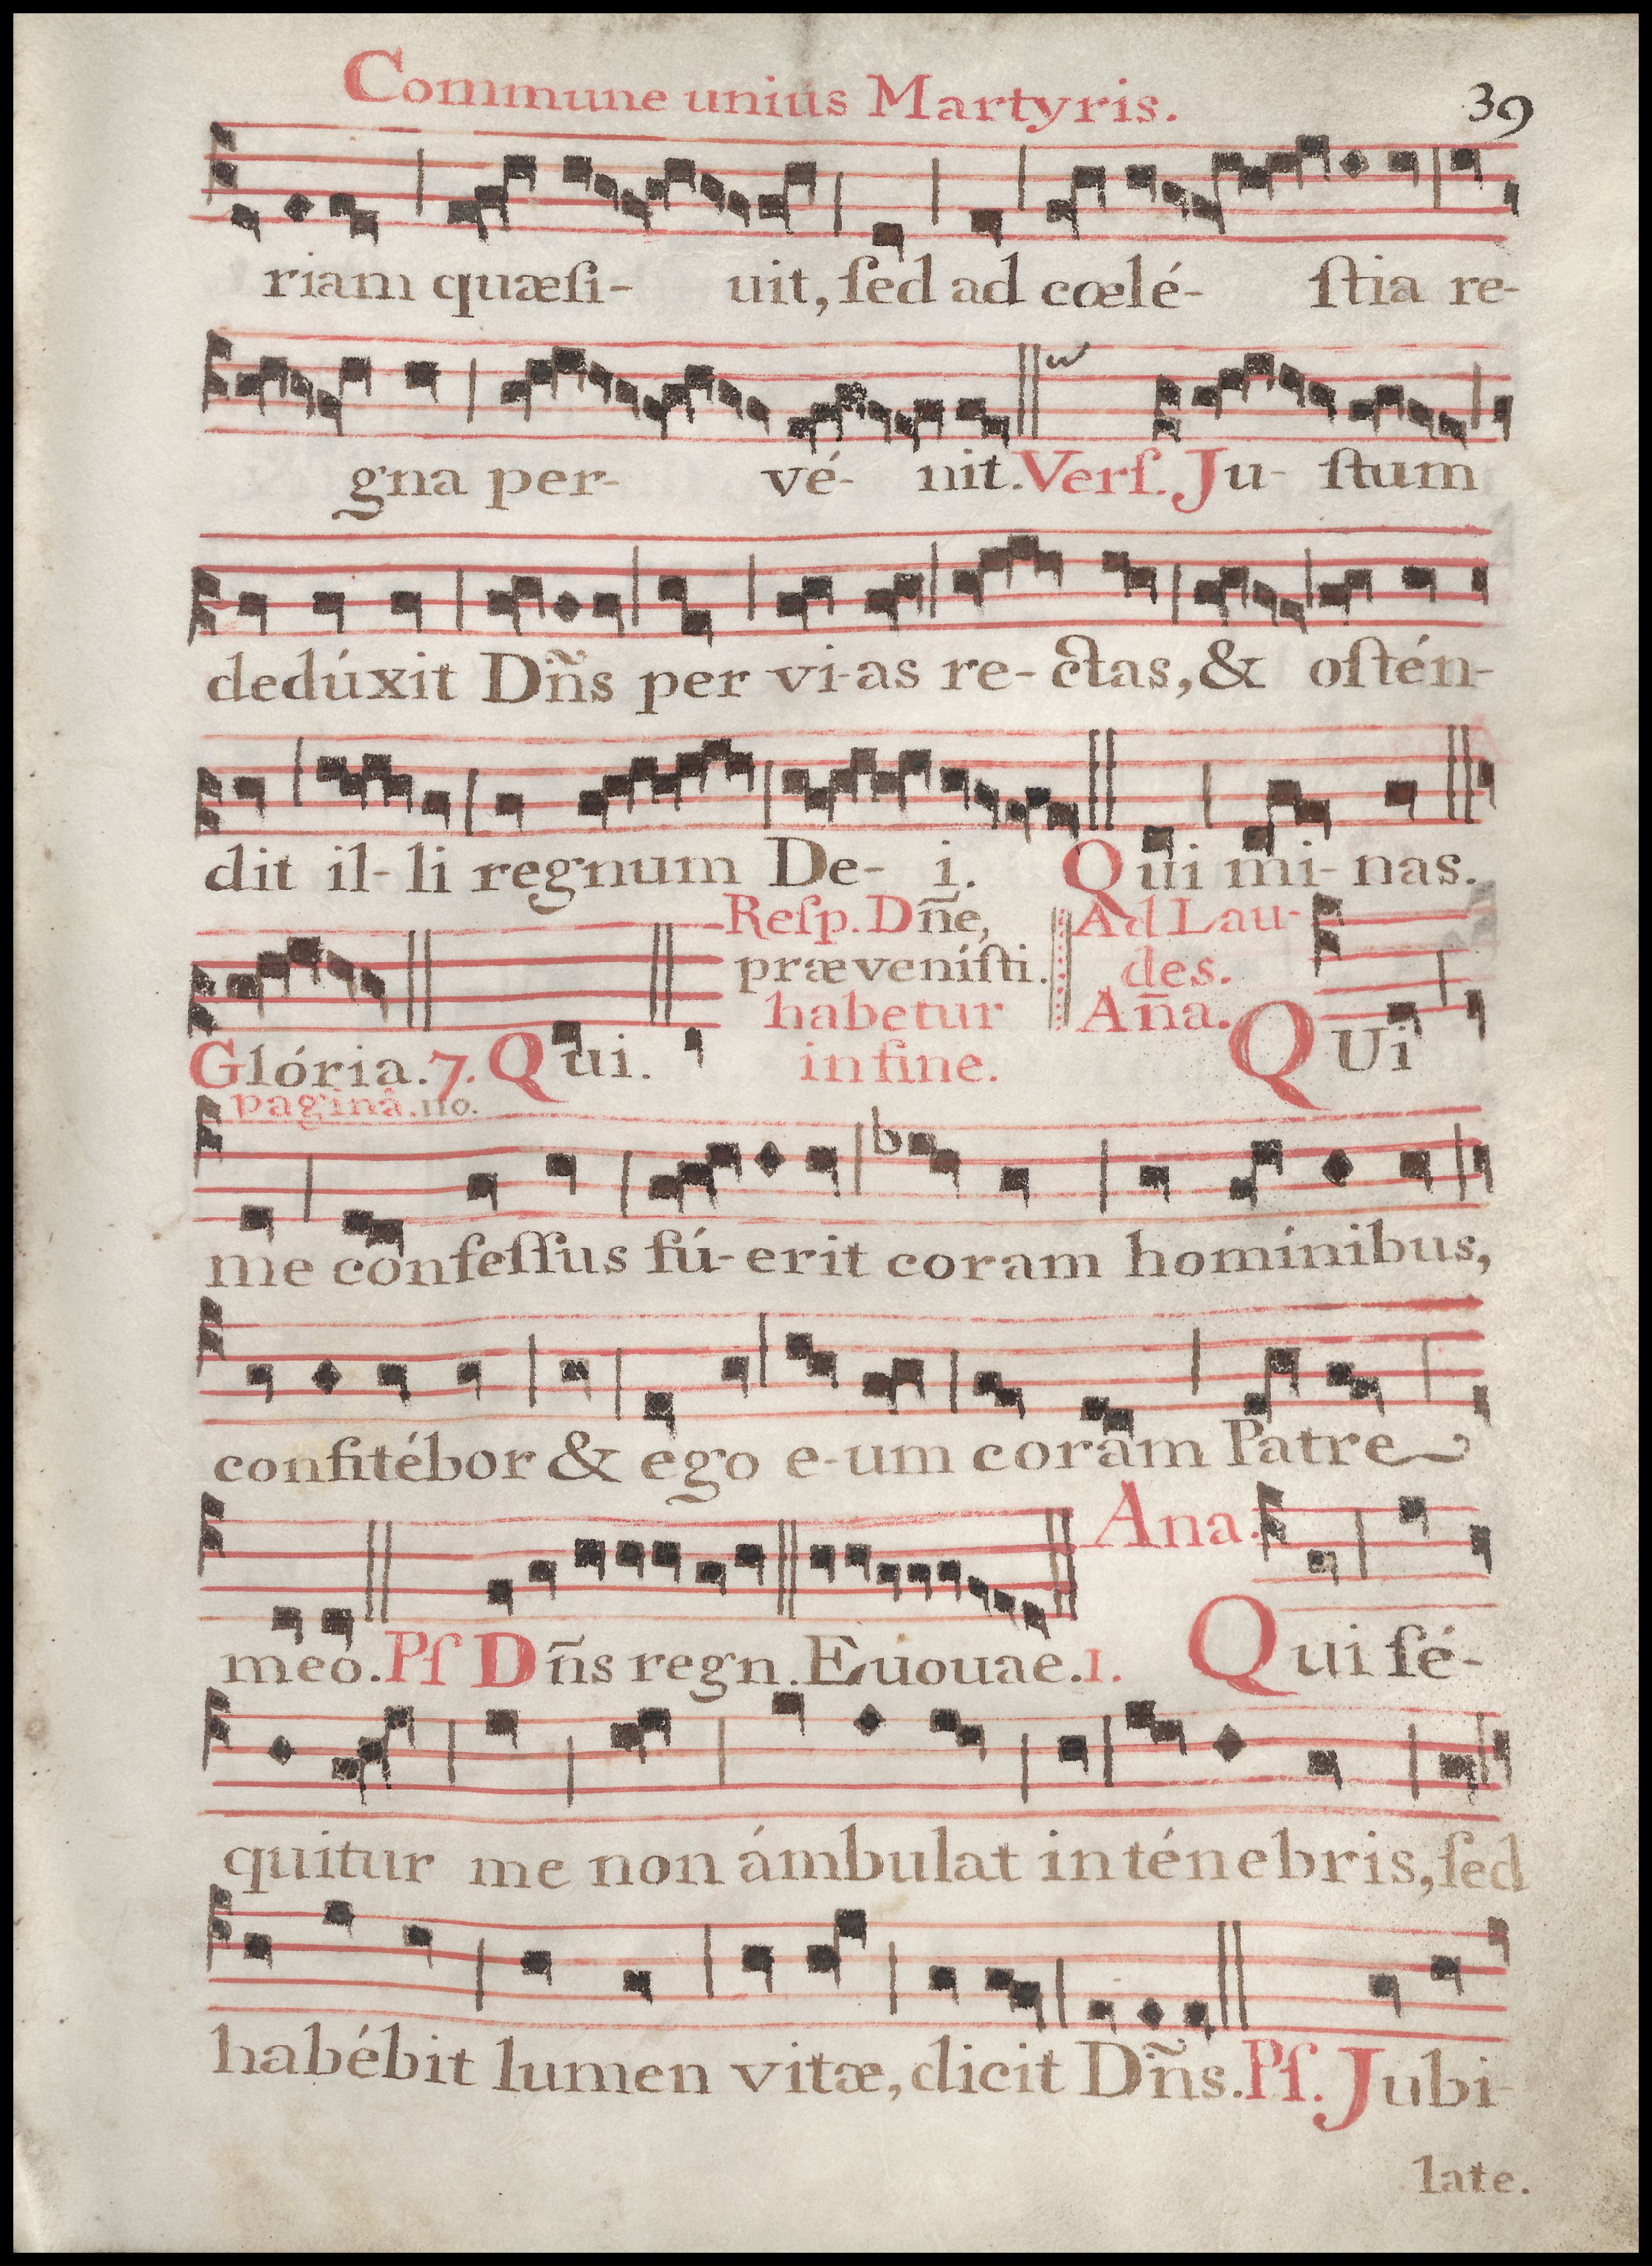 Commune unius Martyris. 39
riam quæſi- uit, ſed ad cœlé- ſtia re-
gna per- vé- nit. Verſ. Ju- ſtum
dedúxit Dñs per vi-as re-ctas, & oſtén-
dit il-li regnum De- i. Qui mi-nas.
Reſp. Dñe, Ad Lau-
præveniſti. des.
habetur Aña. QUi
Glória. 7. Qui. in fine.
paginâ. 110.
me confeſſus fú-erit coram homínibus,
confitébor & ego e-um coram Patre
meo. Pſ Dñs regn. Euouae. 1. Ana. Qui ſé-
quitur me non ámbulat in ténebris, ſed
habébit lumen vitæ, dicit Dñs. Pſ. Jubi-
late.